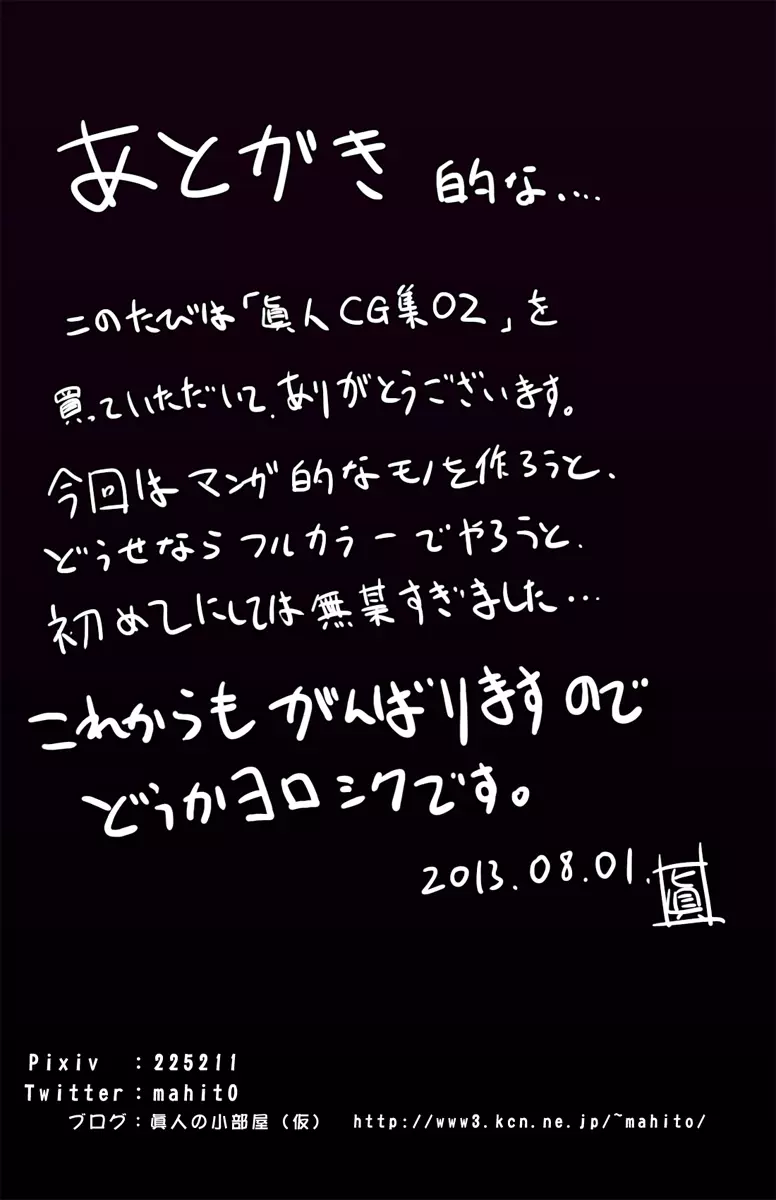 あとがき 的な....
このたびは「眞人CG集02」を
買っていただいて、ありがとうございます。
今回はマンガ的なモノを作ろうと、
どうせならフルカラーでやろうと、
初めてにしては無茶すぎました…
これからもがんばりますので
どうかヨロシクです。
2013.08.01.眞
Pixiv :225211
Twitter:mahit0
ブログ:眞人の小部屋(仮) http://www3.kcn.ne.jp/~mahito/